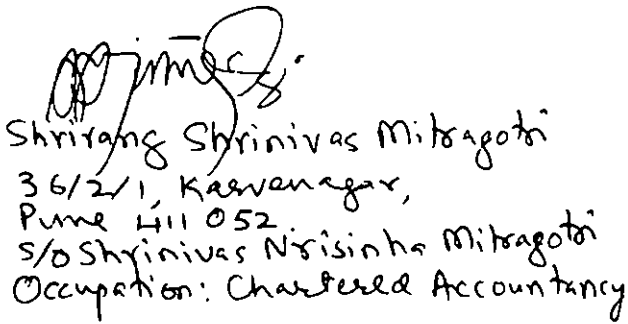 Shrirang Shrinivas Mitragotri
36/2/1, Karvenagar,
Pune 411 052
S/o Shrinivas Nrisinha Mitragotri
Occupation: Chartered Accountancy